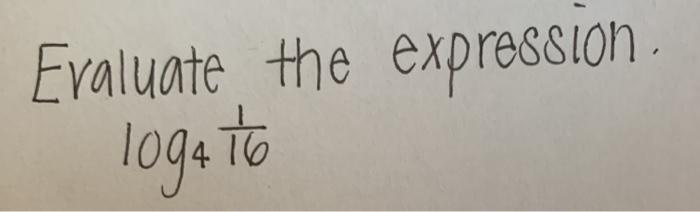 Evaluate the expression.
log₄ 1/16